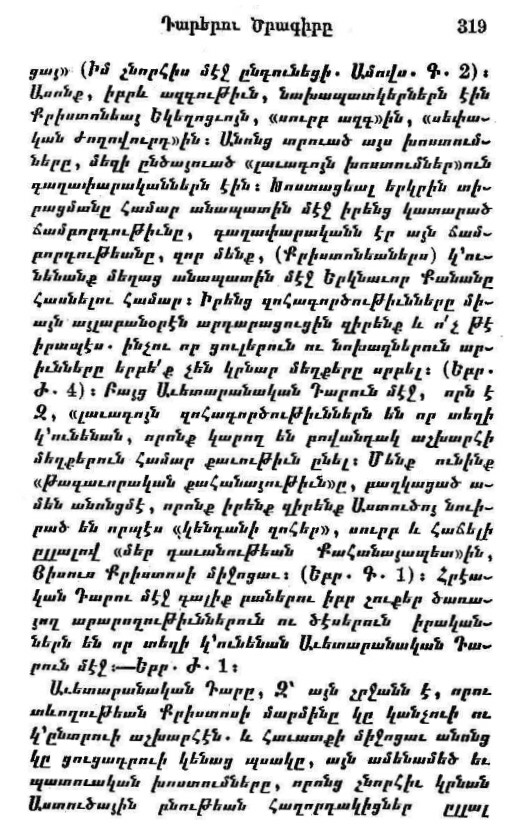 Դարերու Ծրագիրը 319
ցայ» (Իմ շնորհիս մէջ ընդունեցի. Ամովս. Գ. 2)։
Ասոնք, իբրև ազգութիւն, նախապատկերներն էին
Քրիստոնեայ Եկեղեցւոյն, «սուրբ ազգ»ին, «սեփա-
կան ժողովուրդ»ին։ Անոնց տրուած այս խոստում-
ները, մեզի ընծայուած «լաւագոյն խոստումներ»ուն
գաղափարականներն էին։ Խոստացեալ երկրին տի-
րացմանը համար անապատին մէջ իրենց կատարած
ճամբորդութիւնը, գաղափարականն էր այն ճամ-
բորդութեանը, զոր մենք, (Քրիստոնեաներս) կ՚ու-
նենանք մեղաց անապատին մէջ Երկնաւոր Քանանը
հասնելու համար։ Իրենց զոհագործութիւնները մի-
այն այլաբանօրէն արդարացուցին զիրենք և ո՛չ թէ
իրապէս. ինչու որ ցուլերուն ու նոխազներուն ար-
իւնները երբե՛ք չեն կրնար մեղքերը սրբել։ (Եբր.
Ժ. 4)։ Բայց Աւետարանական Դարուն մէջ, որն է
Զ, «լաւագոյն զոհագործութիւններն են որ տեղի
կ՚ունենան, որոնք կարող են բովանդակ աշխարհի
մեղքերուն համար քաւութիւն ընել։ Մենք ունինք
«Թագաւորական քահանայութիւն»ը, բաղկացած ա-
մեն անոնցմէ, որոնք իրենք զիրենք Աստուծոյ նուի-
րած են որպէս «կենդանի զոհեր», սուրբ և հաճելի
ըլլալով «մեր դաւանութեան Քահանայապետ»ին,
Յիսուս Քրիստոսի միջոցաւ։ (Եբր. Գ. 1)։ Հրէա-
կան Դարու մէջ գալիք բաներու իբր շուքեր ծառա-
յող արարողութիւններուն ու ծէսերուն իրական-
ներն են որ տեղի կ՚ունենան Աւետարանական Դա-
րուն մէջ։—Եբր. Ժ. 1։
Աւետարանական Դարը, Զ՝ այն շրջանն է, որու
տևողութեան Քրիստոսի մարմինը կը կանչուի ու
կ՚ընտրուի աշխարհէն. և հաւատքի միջոցաւ անոնց
կը ցուցադրուի կենաց պսակը, այն ամենամեծ եւ
պատուական խոստումները, որոնց շնորհիւ կրնան
Աստուծային բնութեան հաղորդակիցներ ըլլալ